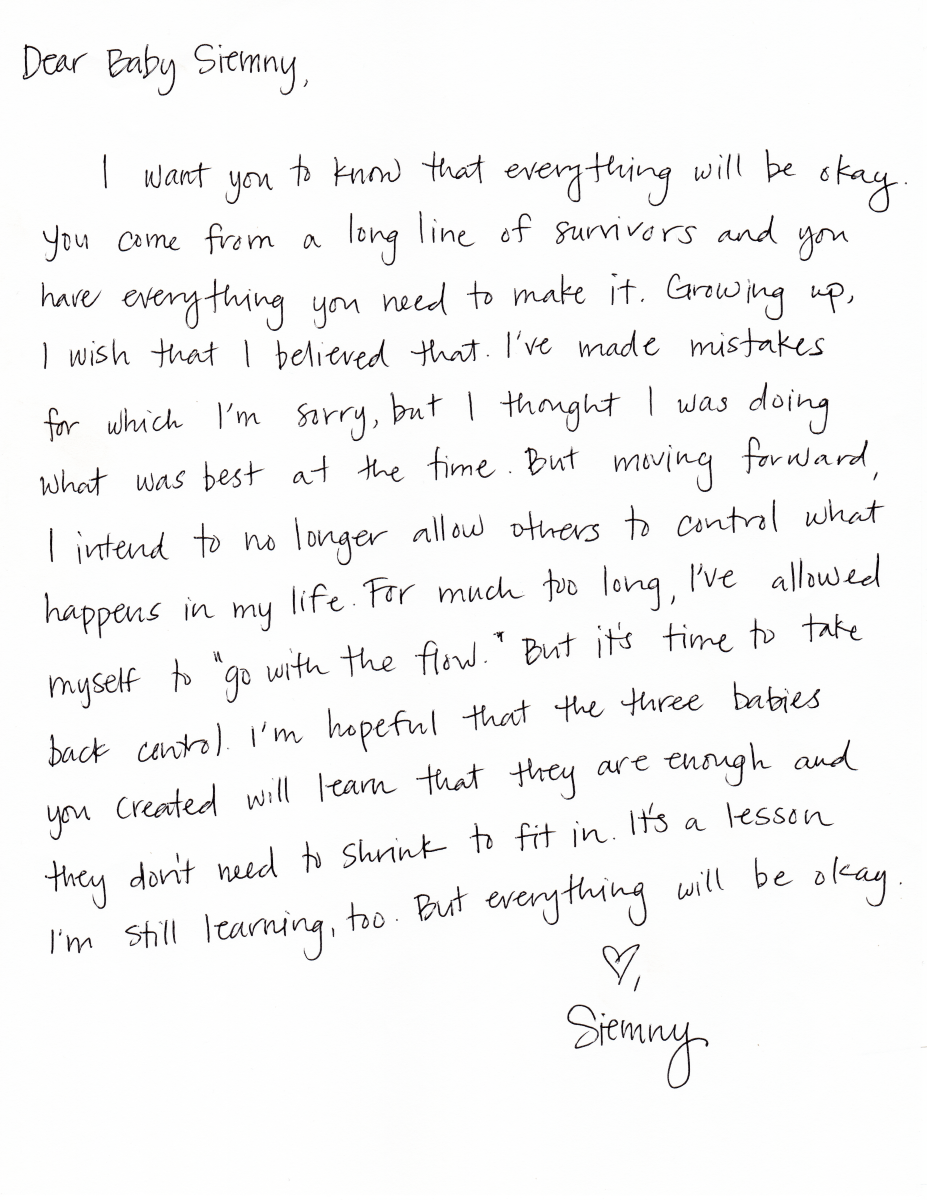 Dear Baby Siemny,
I want you to know that everything will be okay.
You come from a long line of survivors and you
have everything you need to make it. Growing up,
I wish that I believed that. I've made mistakes
for which I'm sorry, but I thought I was doing
what was best at the time. But moving forward,
I intend to no longer allow others to control what
happens in my life. For much too long, I've allowed
myself to "go with the flow." But it's time to take
back control. I'm hopeful that the three babies
you created will learn that they are enough and
they don't need to shrink to fit in. It's a lesson
I'm still learning, too. But everything will be okay.
♡,
Siemny